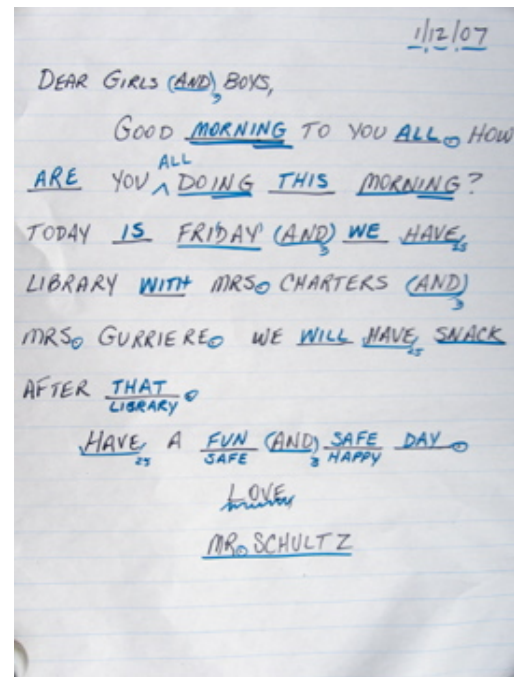 1/12/07
DEAR GIRLS (AND)3 BOYS,
GOOD MORNING TO YOU ALL. HOW
ALL
ARE YOU ^ DOING THIS MORNING?
TODAY IS FRIDAY (AND)3 WE HAVE25
LIBRARY WITH MRS. CHARTERS (AND)3
MRS. GURRIERE. WE WILL HAVE25 SNACK
AFTER THAT.
LIBRARY
HAVE25 A FUN (AND)3 SAFE DAY.
SAFE HAPPY
LOVE,
MR. SCHULTZ